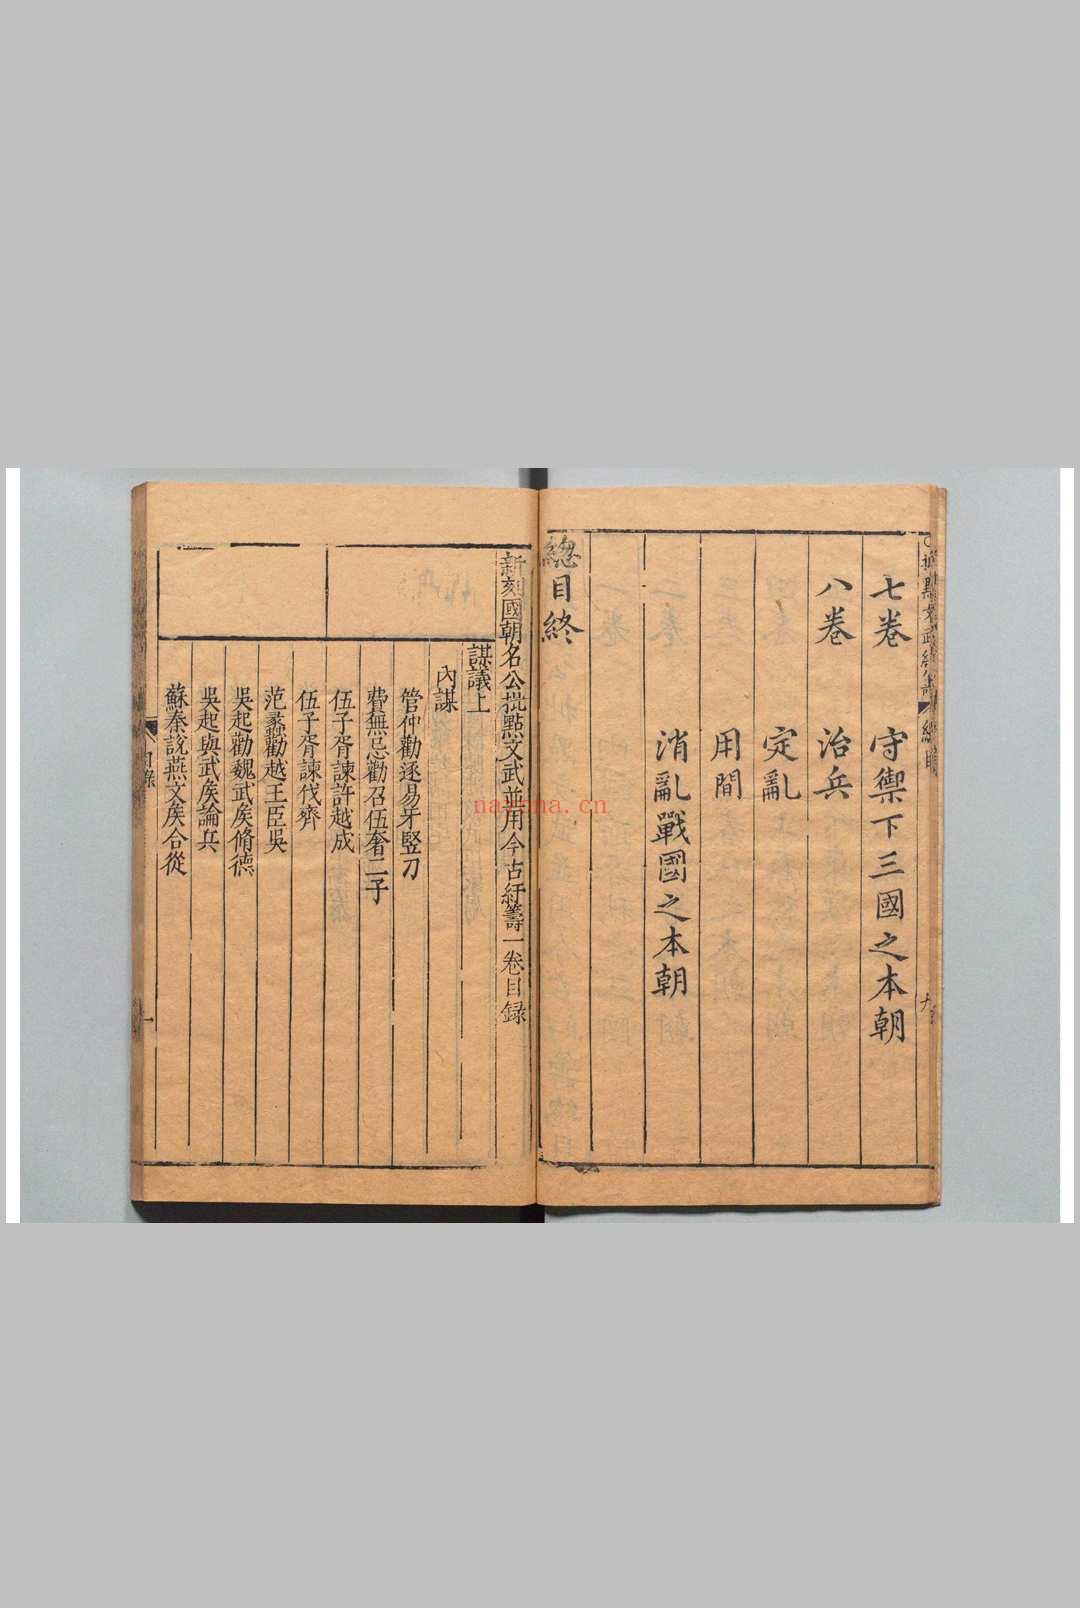 七卷 守禦下三國之本朝
八卷 治兵
定亂
用間
消亂戰國之本朝
總目終
新刻國朝名公批點文武並用今古紆籌一卷目録
謀議上
內謀
管仲勸逐易牙竪刀
費無忌勸召伍奢二子
伍子胥諫許越成
伍子胥諫伐齊
范蠡勸越王臣吳
吳起勸魏武矦脩德
吳起與武矦論兵
蘇秦說燕文矦合從
目錄
一
nayona.cn